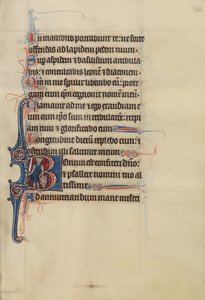 In manibus portabunt te: ne forte
offendas ad lapidem pedem tuum.
Sup aspidem & basiliscum ambula
bis: & conculcabis leonem & draconem.
in me speravit liberabo eum: prote
gam eum qm cognovit nomen meum.
Clamavit ad me & ego exaudiam e
um cum ipso sum in tribulatione: eripi
am eum & glorificabo eum
Longitudine dierum replebo eum: &
ostendam illi salutare meum.
Bonum est confiteri dno:
& psallere nomini tuo al
tissime.
Ad annuntiandum mane miseri